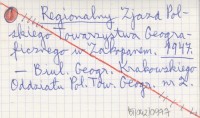 Regionalny Zjazd Pol-
skiego Towarzystwa Geogra-
ficznego w Zakopanem. 1947.
— Biul. Geogr. Krakowskiego
Oddziału Pol. Tow. Geogr. nr 2.